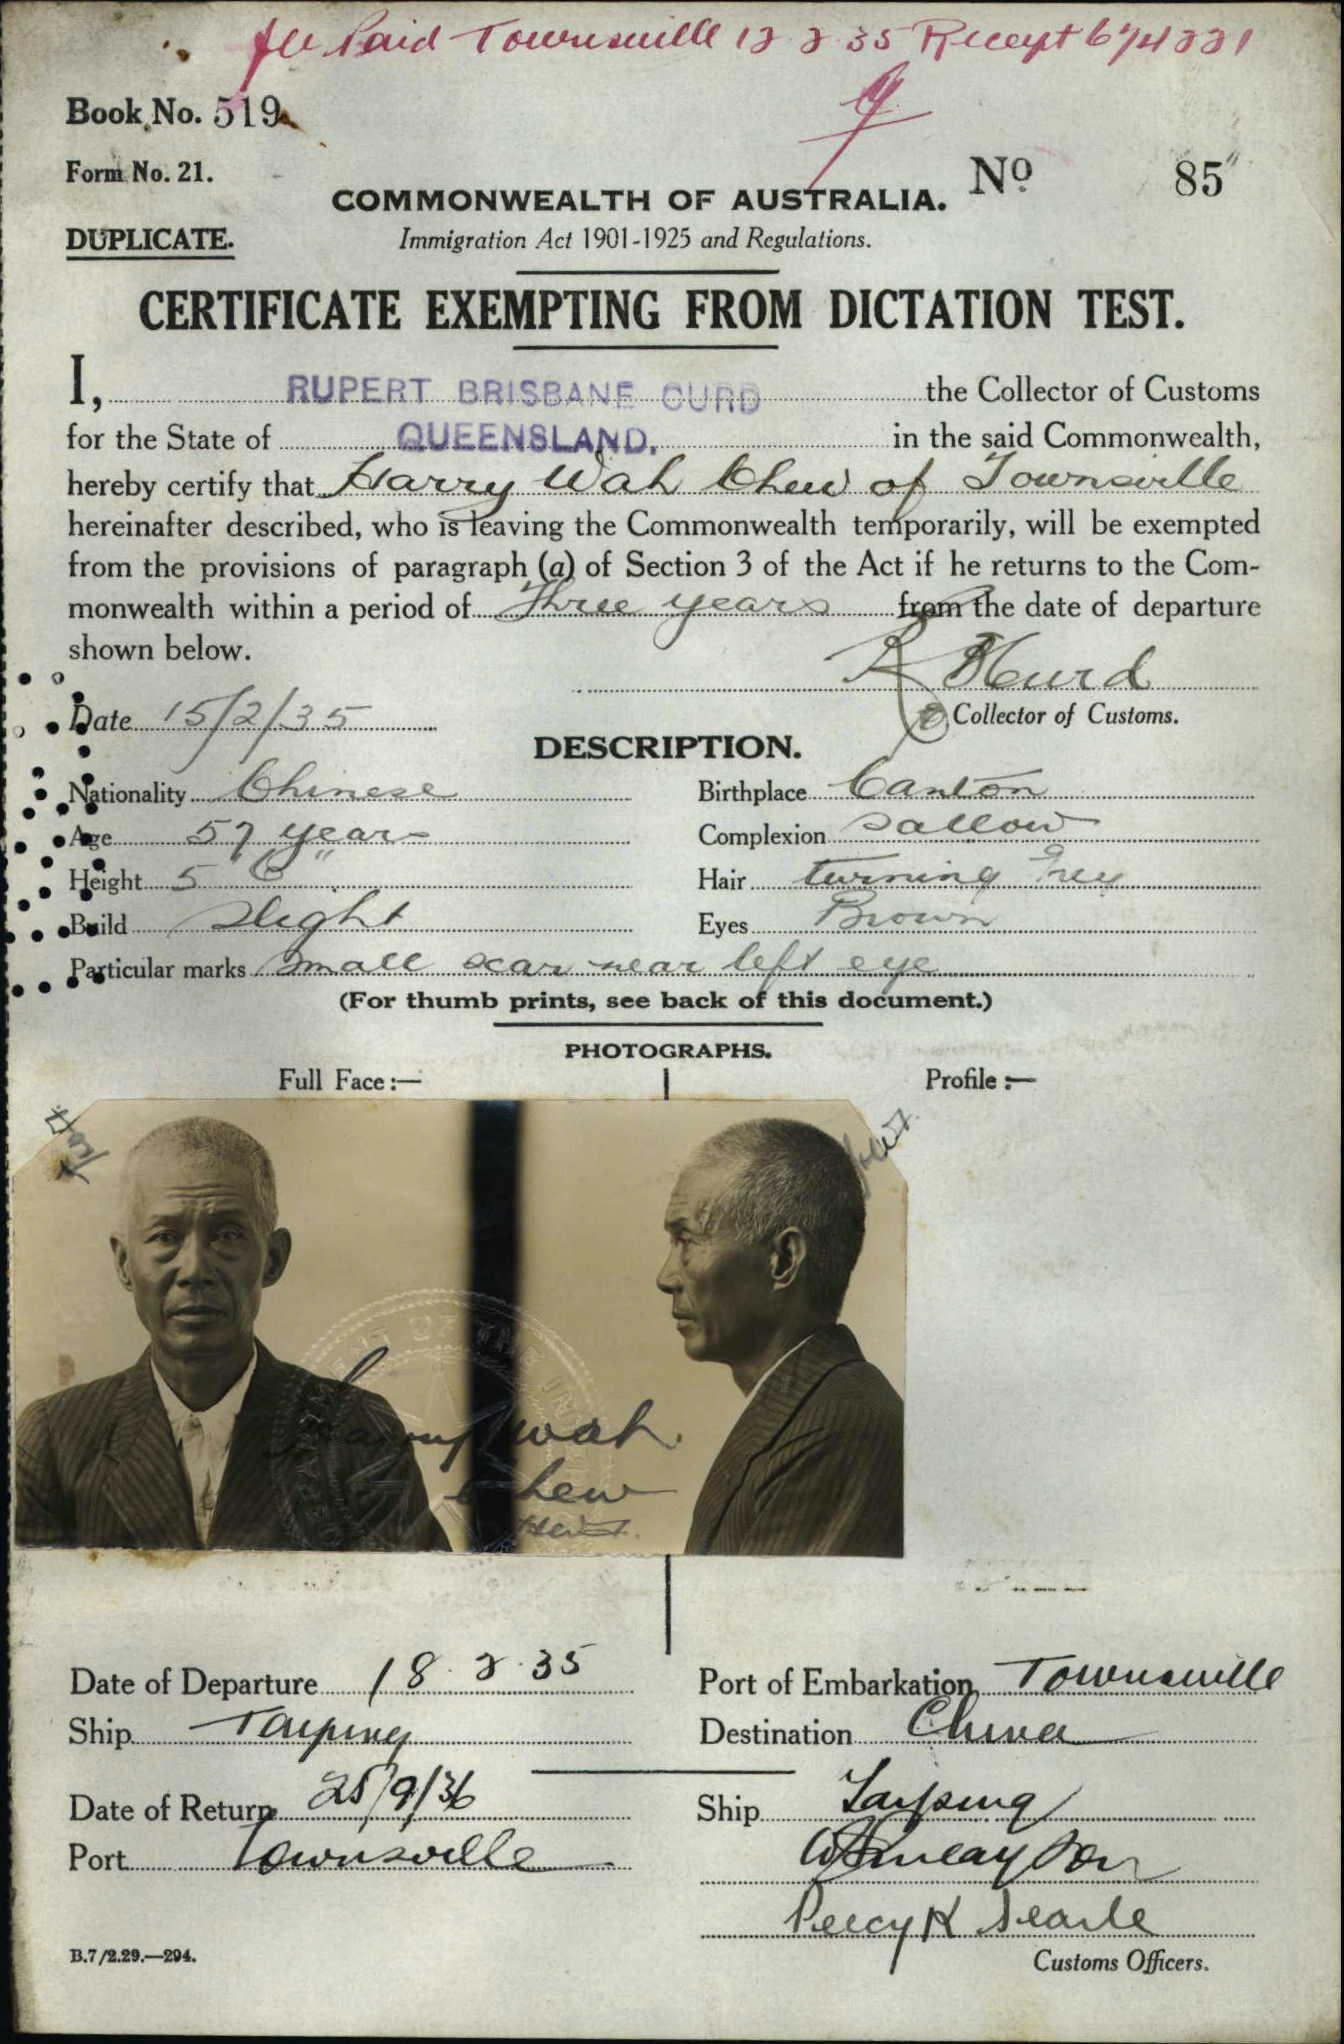 Paid Townsville 12 2 35 Receipt 674221
Book No. 519
Form No. 21.
COMMONWEALTH OF AUSTRALIA. No 85
DUPLICATE.
Immigration Act 1901-1925 and Regulations.
CERTIFICATE EXEMPTING FROM DICTATION TEST.
I, RUPERT BRISBANE CURD the Collector of Customs
for the State of QUEENSLAND. in the said Commonwealth,
hereby certify that Harry Wah Chew of Townsville
hereinafter described, who is leaving the Commonwealth temporarily, will be exempted
from the provisions of paragraph (a) of Section 3 of the Act if he returns to the Com-
monwealth within a period of Three years from the date of departure
shown below.
R B Curd
Date 15/2/35
Collector of Customs.
DESCRIPTION.
Nationality Chinese Birthplace Canton
Age 57 years Complexion Sallow
Height 5' 6" Hair turning Grey
Build Slight Eyes Brown
Particular marks Small scar near left eye
(For thumb prints, see back of this document.)
PHOTOGRAPHS.
Full Face:— Profile:—
Harry Wah
Chew
Date of Departure 18.2.35 Port of Embarkation Townsville
Ship Taiping Destination China
Date of Return 25/9/36 Ship Taiping
Port Townsville
Percy K Searle
B.7/2.29.—294.
Customs Officers.